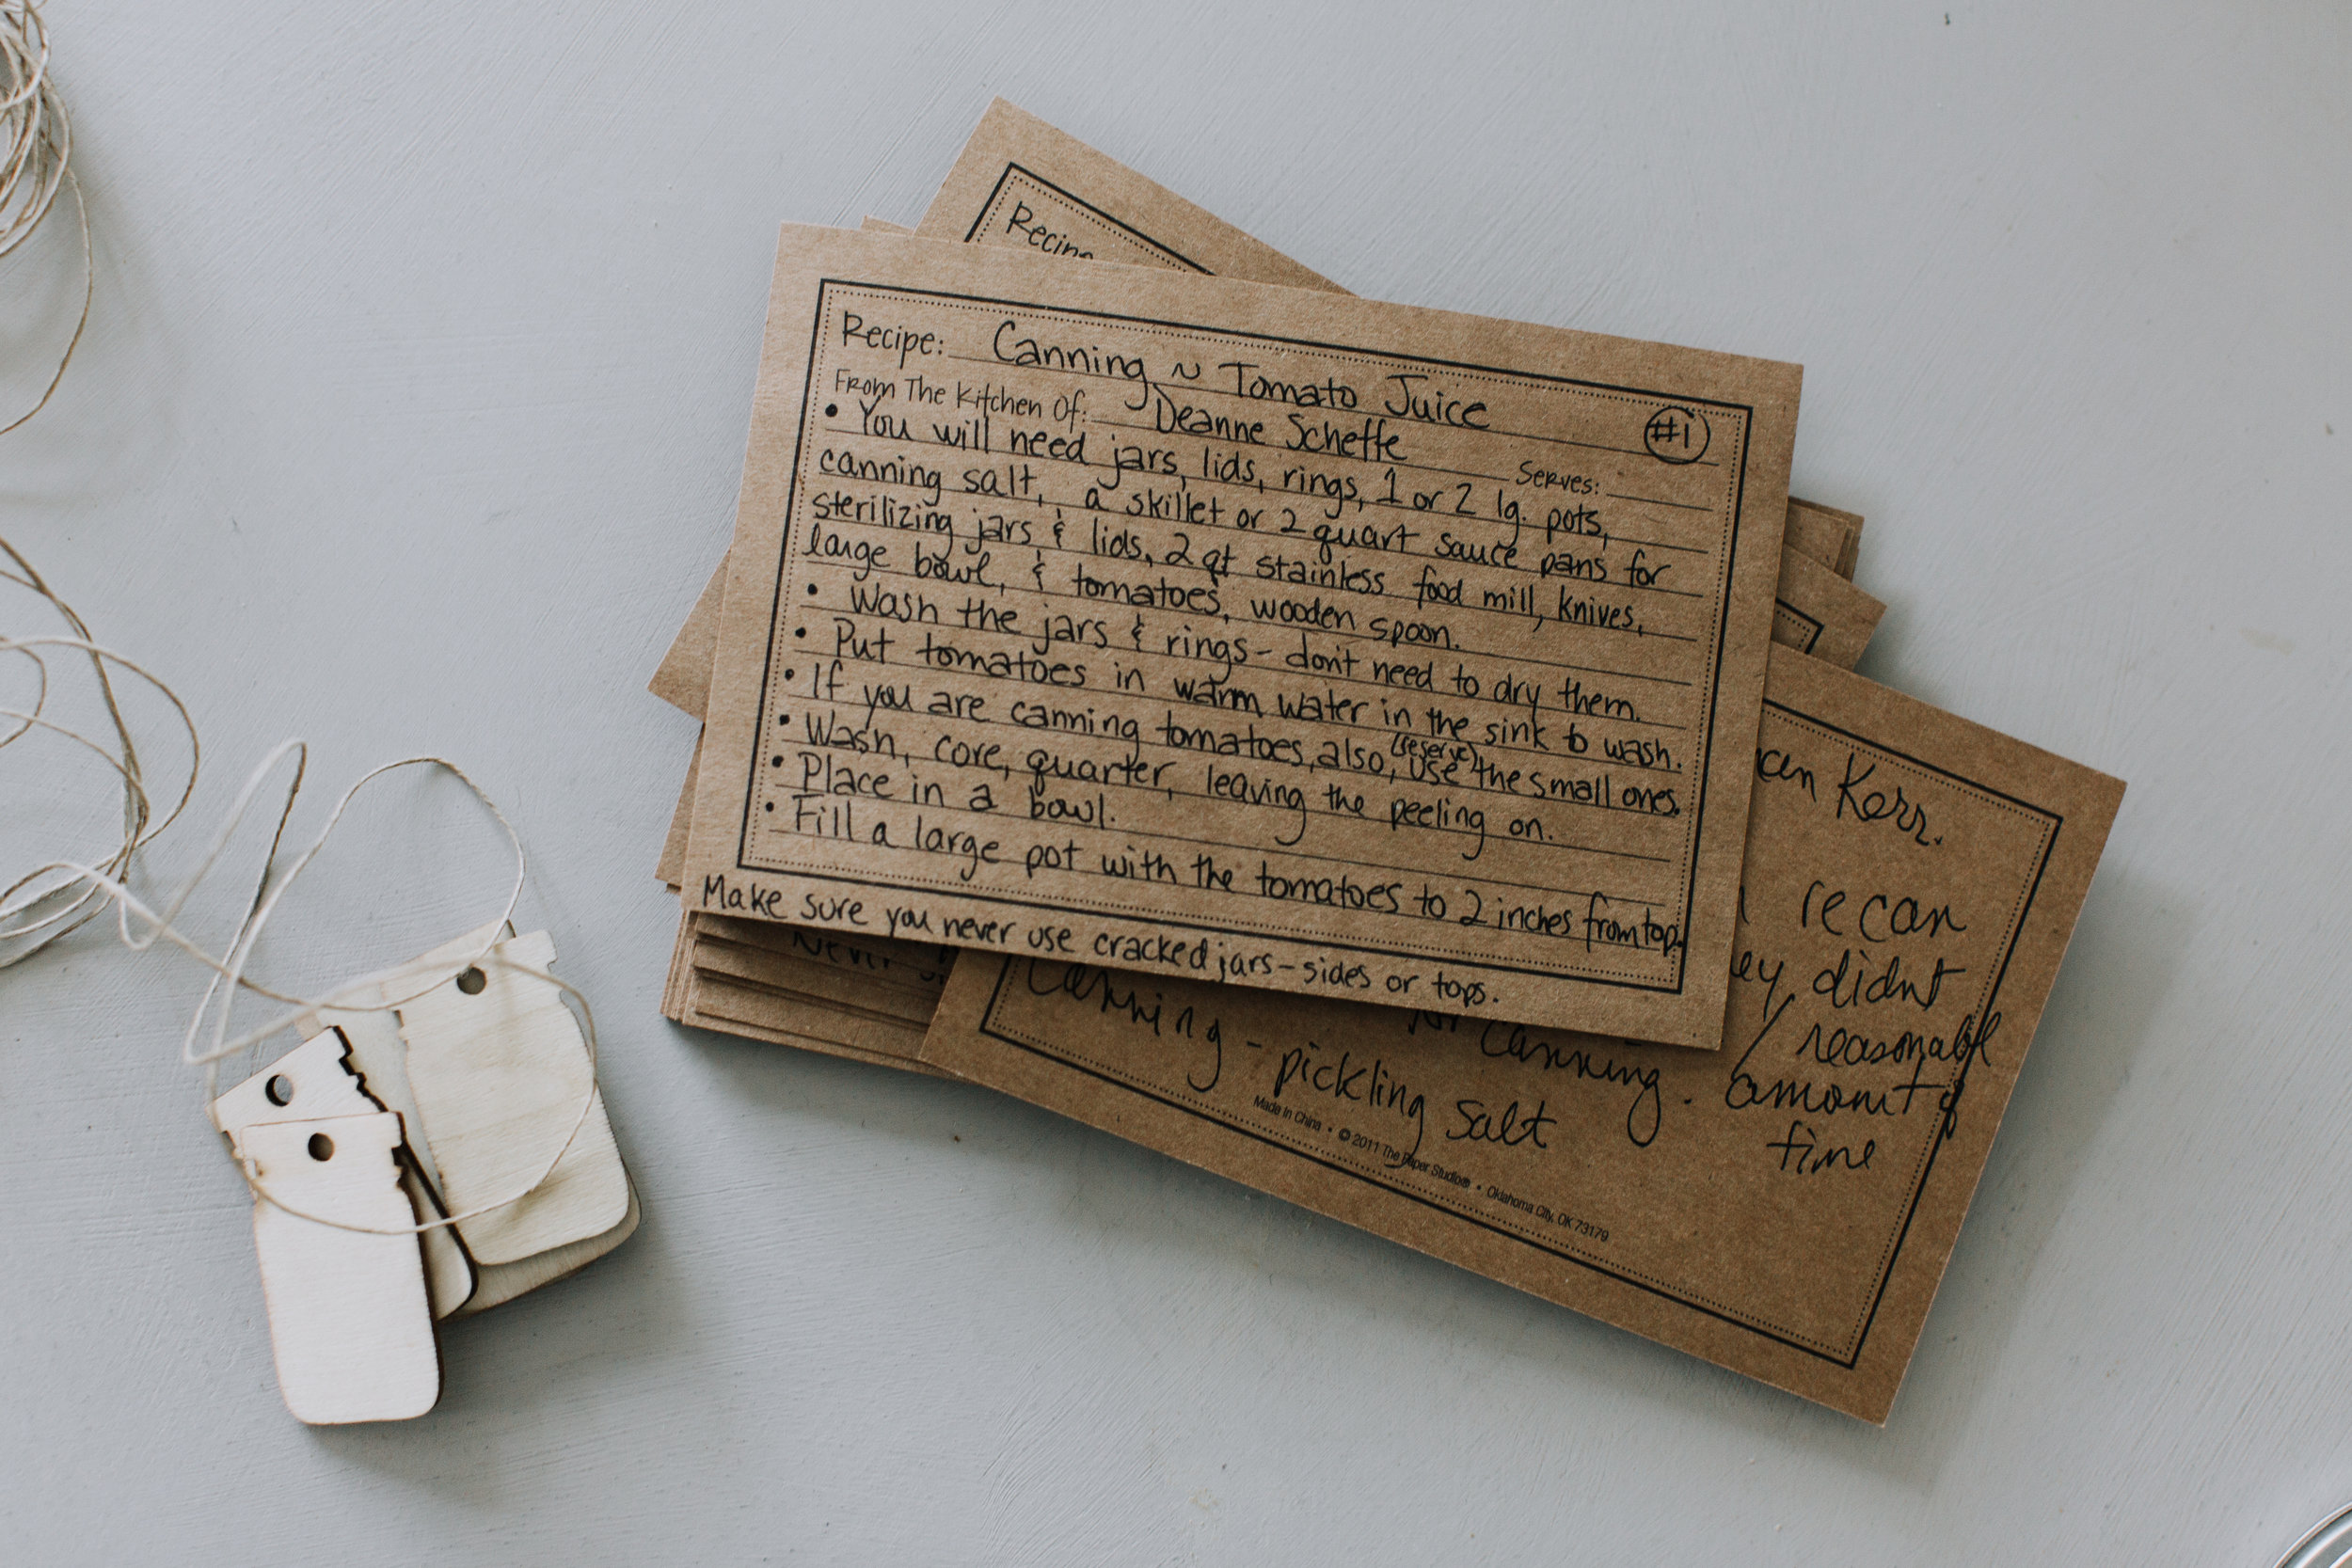 Recipe:
Recipe: Canning ~ Tomato Juice #1
From The Kitchen Of: Deanne Scheffe Serves:
• You will need jars, lids, rings, 1 or 2 lg. pots,
canning salt, a skillet or 2 quart sauce pans for
sterilizing jars & lids, 2 qt stainless food mill, knives,
large bowl, & tomatoes, wooden spoon.
• Wash the jars & rings - don't need to dry them.
• Put tomatoes in warm water in the sink to wash.
• If you are canning tomatoes, also, (reserve) use the small ones.
• Wash, core, quarter, leaving the peeling on.
• Place in a bowl.
• Fill a large pot with the tomatoes to 2 inches from top.
Make sure you never use cracked jars - sides or tops.
Kerr.
recan
didnt
reasonable
amount of
time
canning.
Canning - pickling salt
Made in China • © 2011 The Paper Studio® • Oklahoma City, OK 73179